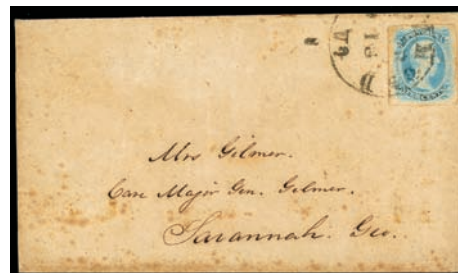 Mrs Gilmer.
Care Major Gen. Gilmer.
Savannah. Geo.